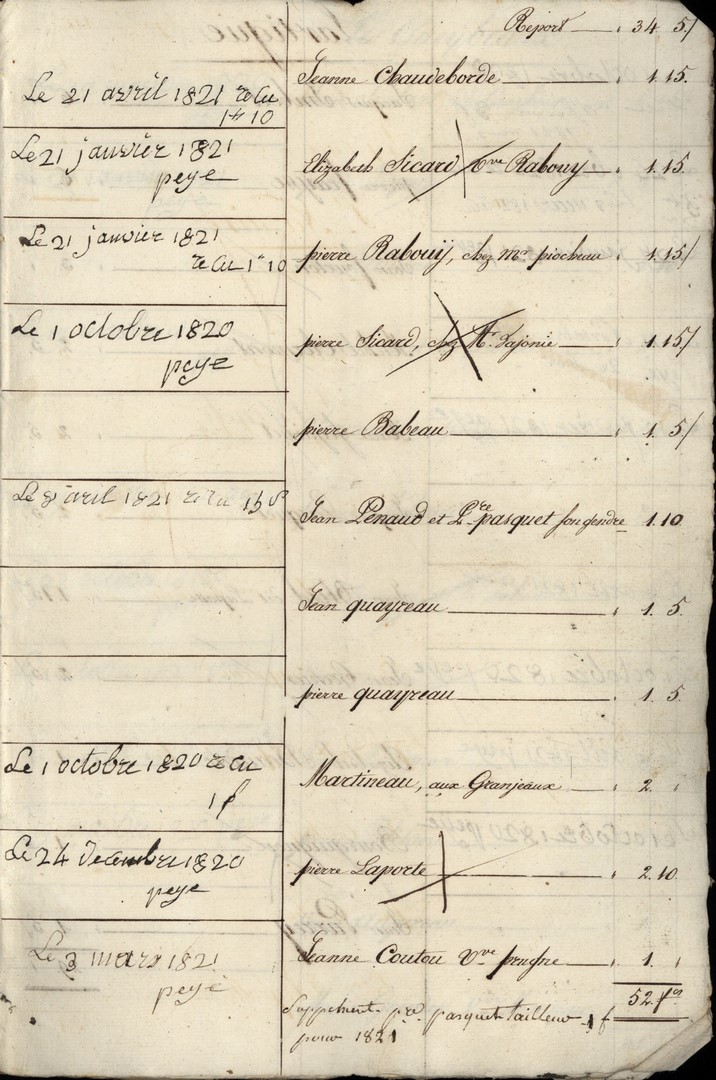 Report " 34 5/
Le 21 avril 1821 recu
1 # 10
Jeanne Chaudeborde " 1. 15.
Le 21 janvier 1821
peye
Elizabeth Sicard vve Rabouy " 1. 15.
Le 21 janvier 1821
recu 1 " 10
pierre Rabouÿ, chez mr piocheau " 1. 15/
Le 1 octobre 1820
peye
pierre Sicard, chez Mr. Lajonie " 1. 15/
pierre Babeau " 1. 5/
Le 8 avril 1821 recu 15 s
Jean Penaud et Pre pasquet son gendre 1. 10
Jean quayreau " 1. 5
pierre quayreau " 1. 5
Le 1 octobre 1820 recu
1 f
Martineau, aux Granjeaux " 2. "
Le 24 decembre 1820
peye
pierre Laporte " 2. 10
Le 3 mars 1821
peyé
Jeanne Coutou vve " 1. "
52. frs
Supplement pre pasquet tailleur 1 f
pour 1821